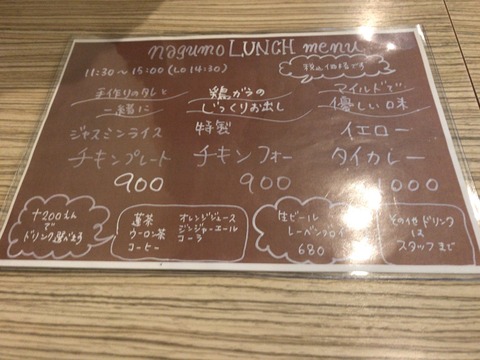 nagumo LUNCH menu
11:30〜15:00 (LO 14:30)
税込価格です
手作りのタレと
一緒に
ジャスミンライス
チキンプレート
900
鶏ガラの
じっくりお出し
特製
チキンフォー
900
マイルドで
優しい口味
イエロー
タイカレー
1000
+200えん
で
ドリンク選べます
ウーロン茶
コーヒー
オレンジジュース
ジンジャーエール
コーラ
生ビール
680
その他ドリンク
は
スタッフまで